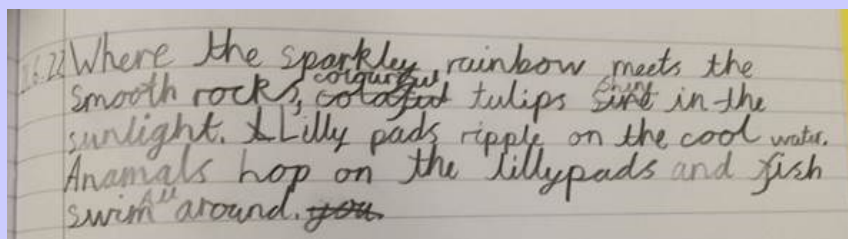 6.22 Where the sparkley rainbow meets the
smooth rocks, colourful tulips shine in the
sunlight. Lilly pads ripple on the cool water.
Anamals hop on the lillypads and fish
swim all around.